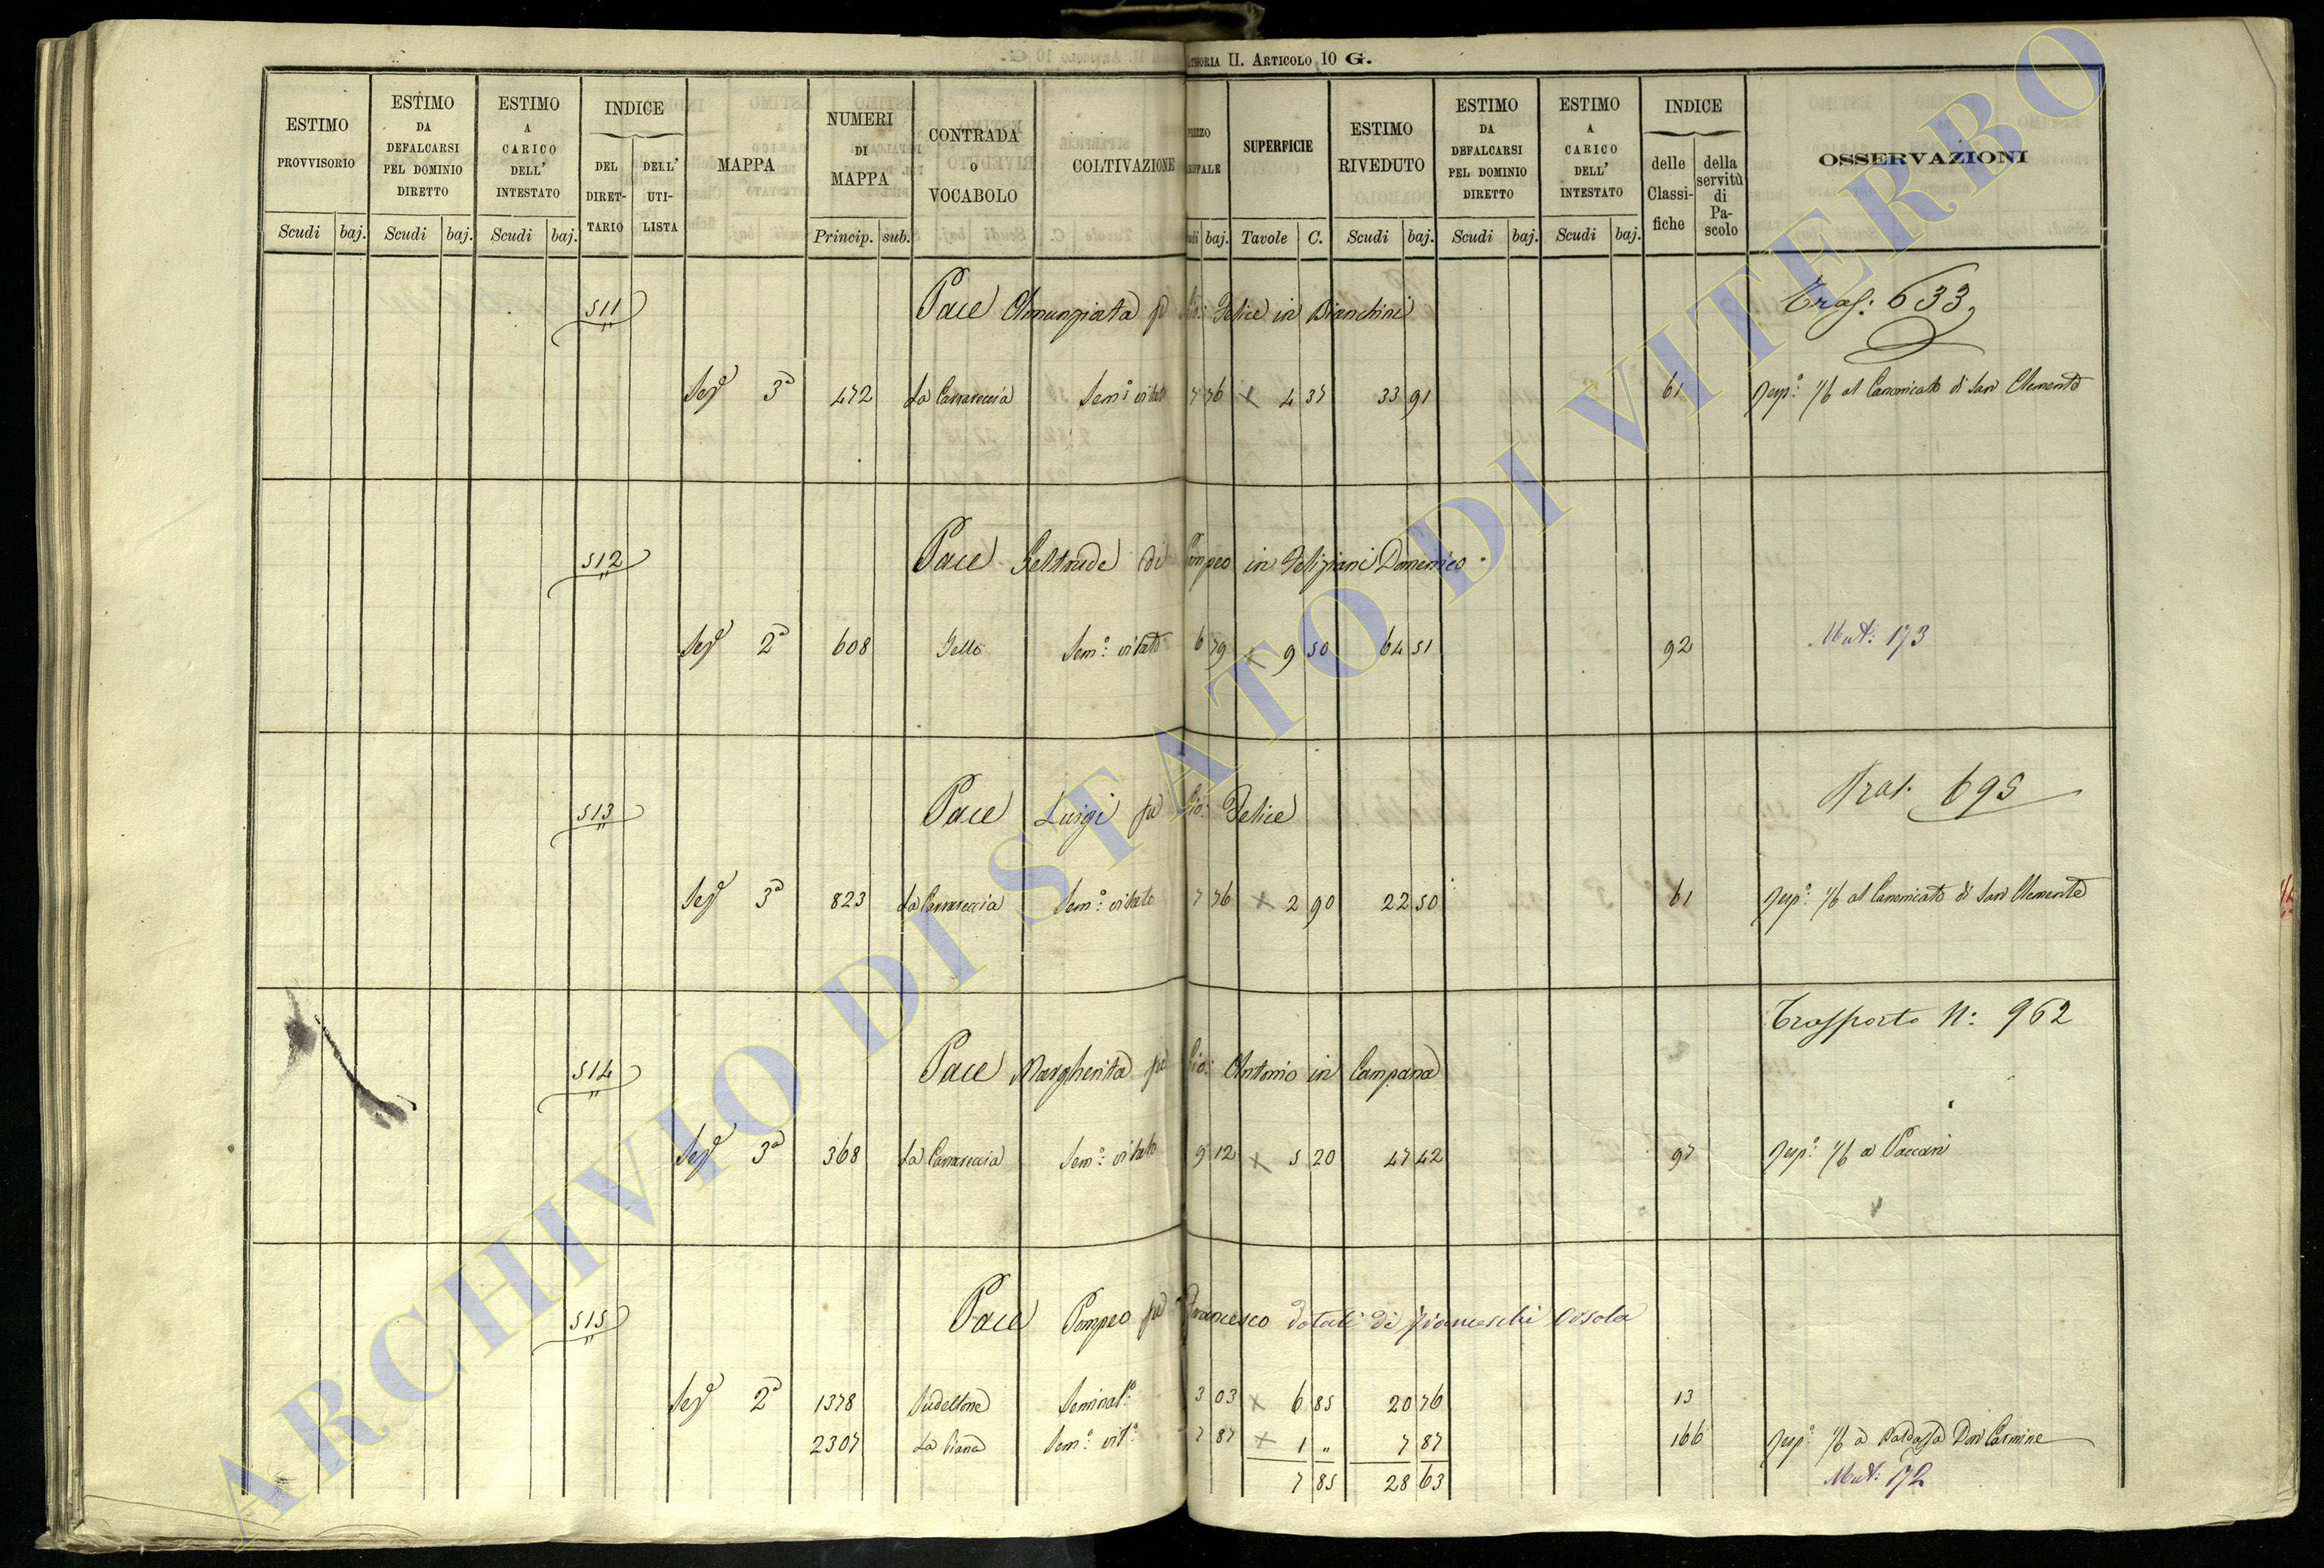 II. Articolo 10 G.
ESTIMO PROVVISORIO Scudi baj.
ESTIMO DA DEFALCARSI PEL DOMINIO DIRETTO Scudi baj.
ESTIMO A CARICO DELL' INTESTATO Scudi baj.
INDICE DEL DIRETTARIO DELL' UTILISTA
MAPPA
NUMERI DI MAPPA Princip. sub.
CONTRADA O VOCABOLO
COLTIVAZIONE
baj.
SUPERFICIE Tavole C.
ESTIMO RIVEDUTO Scudi baj.
ESTIMO DA DEFALCARSI PEL DOMINIO DIRETTO Scudi baj.
ESTIMO A CARICO DELL' INTESTATO Scudi baj.
INDICE delle Classifiche della servitù di Pascolo
OSSERVAZIONI
511 Pace Annunziata fu Gio: Felice in Bianchini Trasf: 633
Sez 3a 472 La Carrareccia Sem: vitato 7 76 x 4 37 33 91 61 Risp: 1/6 al Canonicato di San Clemente
512 Pace Geltrude di Pompeo in Feliziani Domenico
Sez 2a 608 Sem: vitato 6 79 x 9 50 64 51 92 Mut: 173
513 Pace Luigi fu Gio: Felice Tras. 695
Sez 3a 823 La Carrareccia Sem: vitato 7 76 x 2 90 22 50 61 Risp: 1/6 al Canonicato di San Clemente
Trasporto N: 962
514 Pace Margherita fu Gio: Antonio in Campana
Sez 3a 368 La Carrareccia Sem: vitato 9 12 x 5 20 47 42 97 Risp: 1/6 a Paccari
515 Pace Pompeo fu Francesco dotali di Franceschi Orsola
Sez 2a 1378 Seminat: 3 03 x 6 85 20 76 13
2307 La Piana Sem: vit: 7 87 x 1 " 7 87 166 Risp: 1/6 a Don Carmine
7 85 28 63 Mut: 172
ARCHIVIO DI STATO DI VITERBO